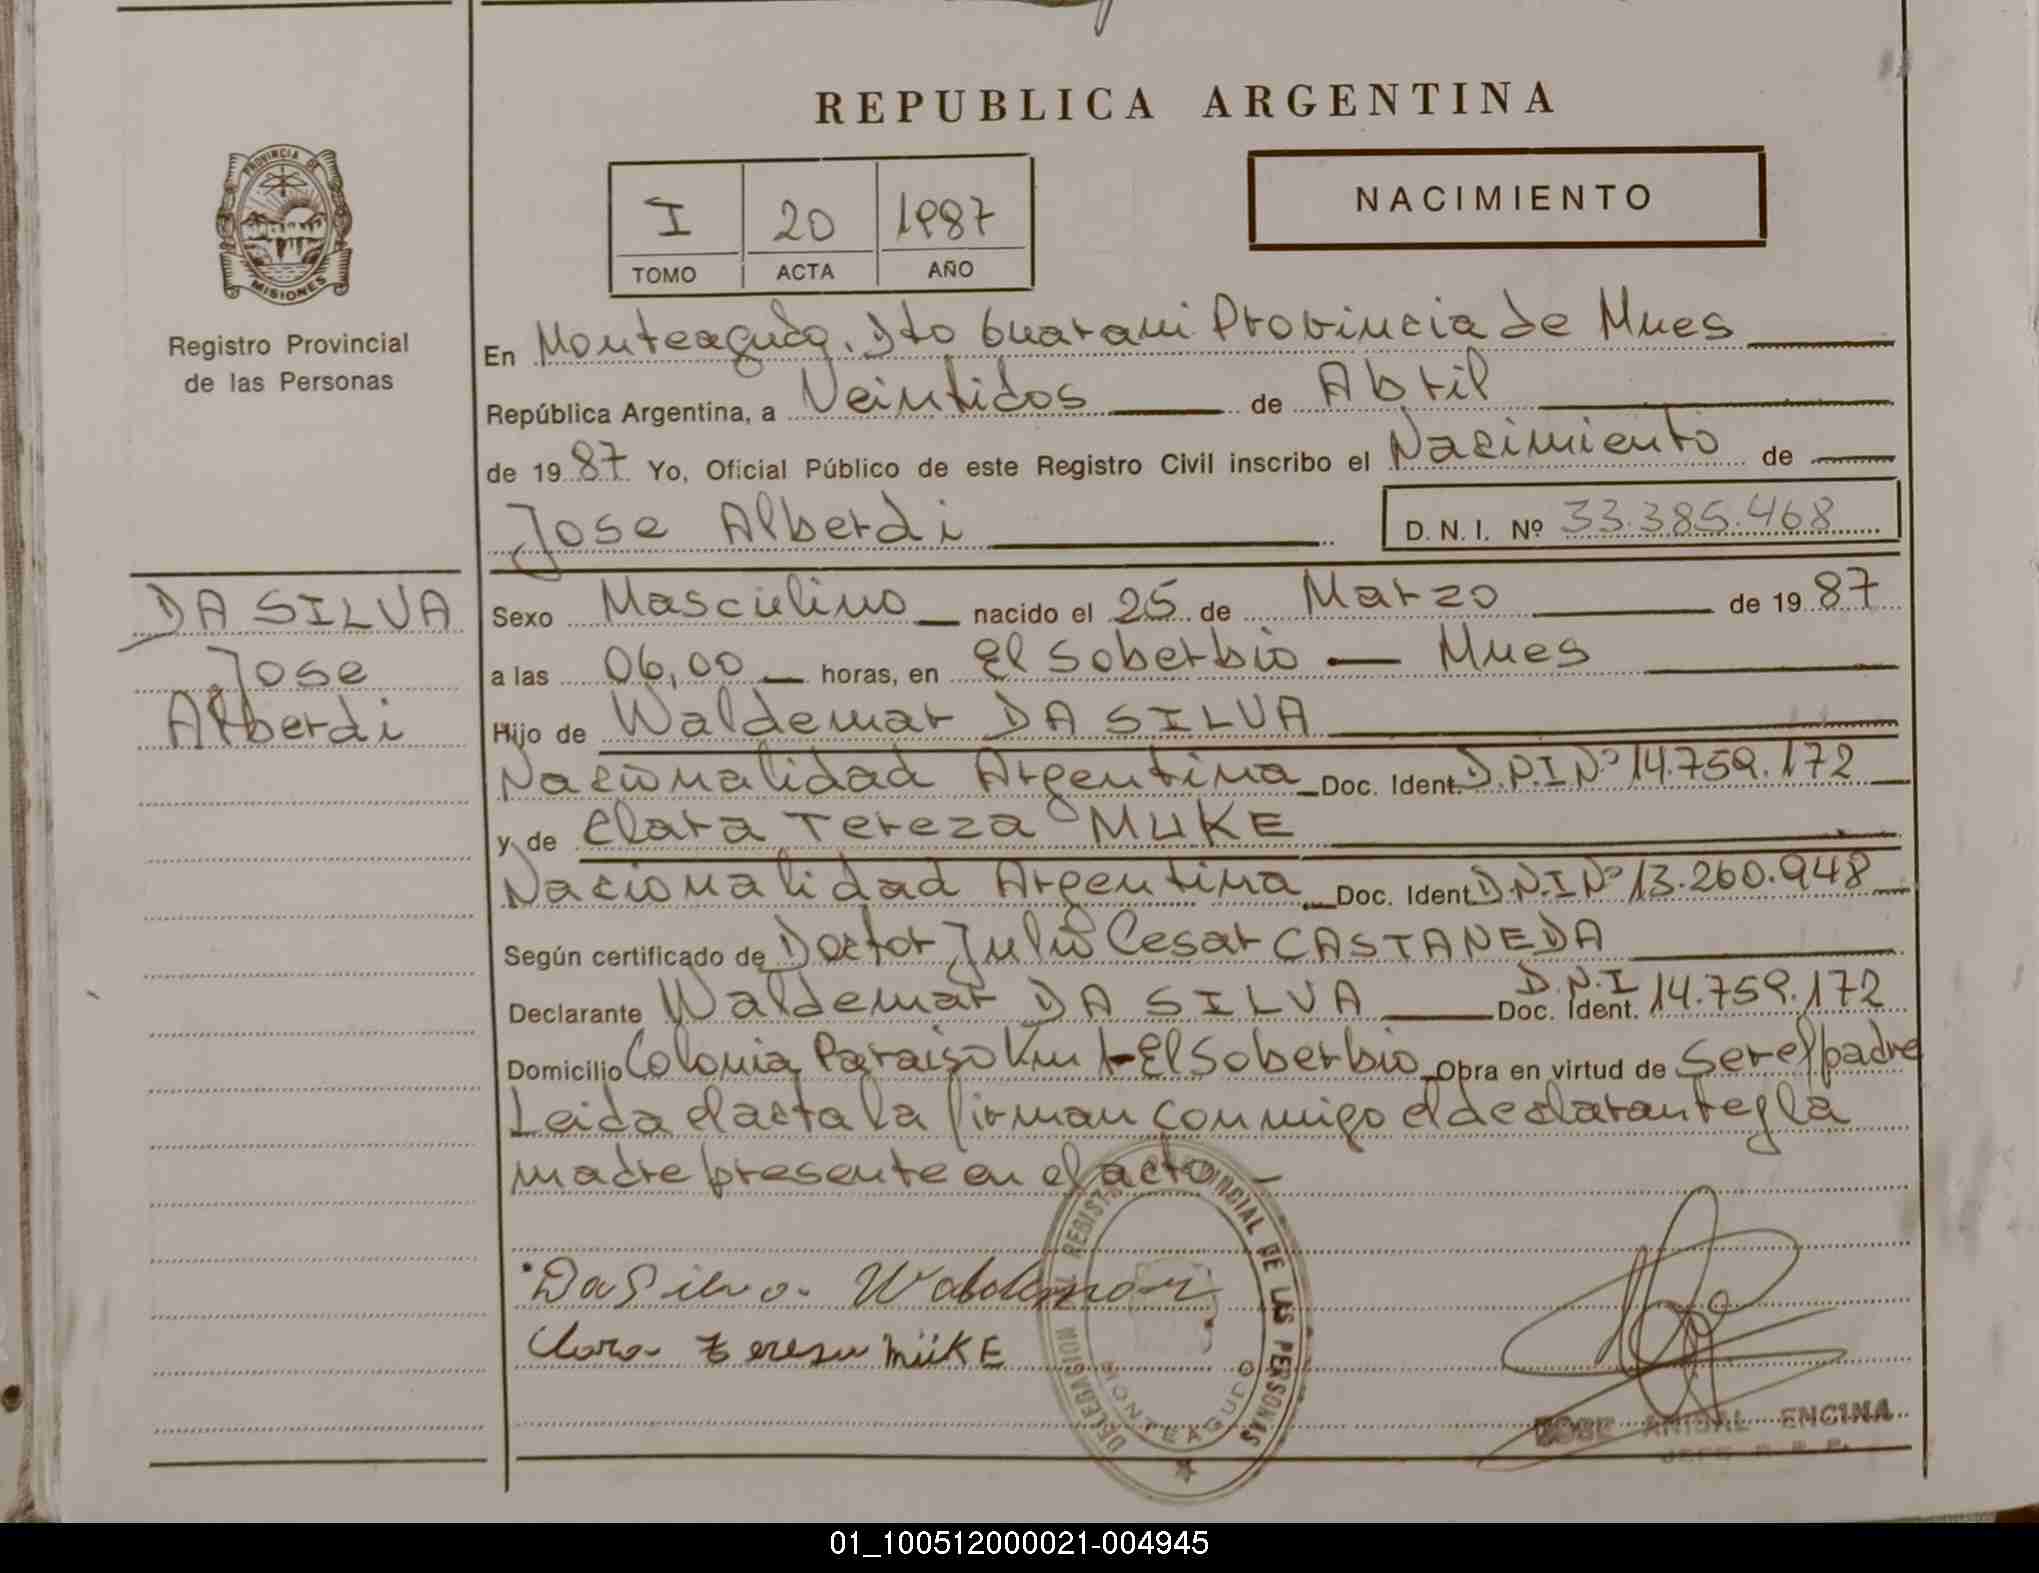 REPUBLICA ARGENTINA
PROVINCIA DE
MISIONES
Registro Provincial
de las Personas
I 20 1987
TOMO ACTA AÑO
NACIMIENTO
En Monteagudo, Dto Guarani Provincia de Mnes
República Argentina, a Veintidos de Abril
de 1987 Yo, Oficial Público de este Registro Civil inscribo el Nacimiento de
Jose Alberdi D. N. I. Nº 33.385.468
DA SILVA
Jose
Alberdi
Sexo Masculino nacido el 25 de Marzo de 1987
a las 06,00 horas, en El Soberbio — Mnes
Hijo de Waldemar DA SILVA
Nacionalidad Argentina Doc. Ident. D.N.I Nº 14.759.172
y de Clara Tereza MUKE
Nacionalidad Argentina Doc. Ident D.N.I Nº 13.260.948
Según certificado de Doctor Julio Cesar CASTANEDA
Declarante Waldemar DA SILVA Doc. Ident. D.N.I 14.759.172
Domicilio Colonia Paraiso Km 1-El Soberbio Obra en virtud de Ser el padre
Leida el acta la firman conmigo el declarante y la
madre presente en el acto –
Da Silva Waldemar
Clara tereza MüKE
DELEGACION REGISTRO PROVINCIAL DE LAS PERSONAS
MONTEAGUDO
JOSE ANIBAL ENCINA
01_100512000021-004945